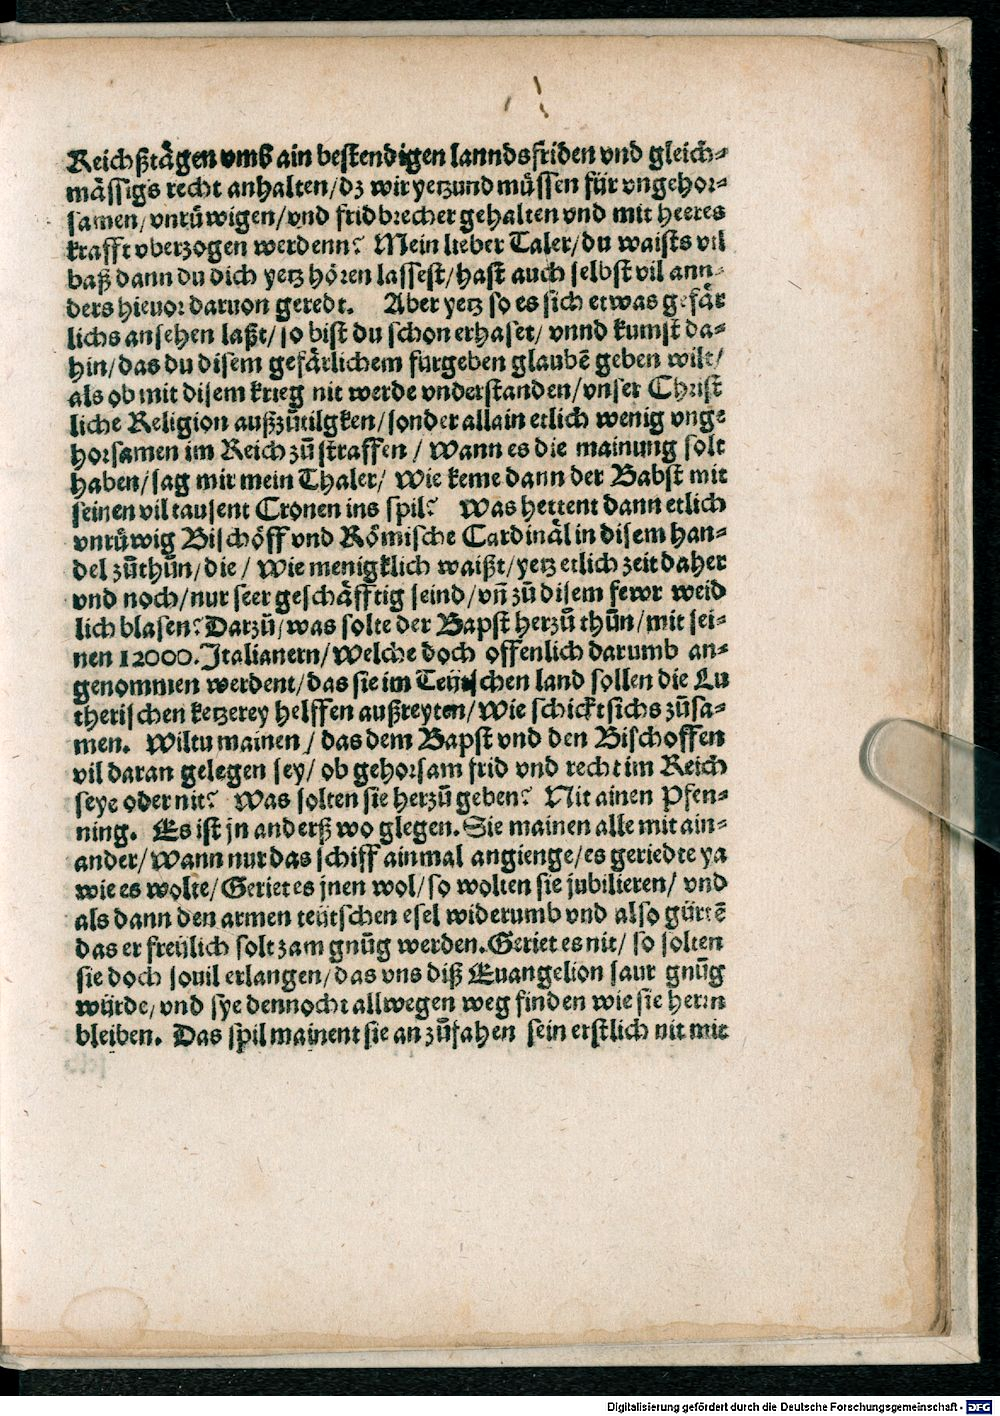 Reichßtägen vmb ain bestendigen lanndsfriden vnd gleich⸗
mässigs recht anhalten/dz wir yetzund müssen für vngehor⸗
samen/vnrüwigen/vnd fridbrecher gehalten vnd mit heeres
krafft vberzogen werdenn? Mein lieber Taler/du waists vil
baß dann du dich yetz hören lassest/hast auch selbst vil ann⸗
ders hieuor daruon geredt. Aber yetz so es sich etwas gefär
lichs ansehen laßt/so bist du schon erhaset/ vnnd kumst da⸗
hin/das du disem gefärlichem fürgeben glaubē geben wilt/
als ob mit disem krieg nit werde vnderstanden/vnser Christ
liche Religion außzůtilgken/sonder allain etlich wenig vnge
horsamen im Reich zů straffen / Wann es die mainung solt
haben/sag mir mein Thaler/ Wie keme dann der Babst mit
seinen vil tausent Cronen ins spil? Was hettent dann etlich
vnrüwig Bischöff vnd Römische Cardinäl in disem han⸗
del zůthůn/die/ Wie menigklich waißt/yetz etlich zeit daher
vnd noch/nur seer geschäfftig seind/vñ zů disem fewr weid
lich blasen? Darzů/was solte der Bapst herzů thůn/mit sei⸗
nen 12000. Italianern/Welche doch offenlich darumb an⸗
genommen werdent/das sie im Teütschen land sollen die Lu
therischen ketzerey helffen außreyten/Wie schickt sichs zůsa⸗
men. Wiltu mainen / das dem Bapst vnd den Bischoffen
vil daran gelegen sey/ ob gehorsam frid vnd recht im Reich
seye oder nit? Was solten sie herzů geben? Nit ainen Pfen⸗
ning. Es ist jn anderß wo glegen. Sie mainen alle mit ain⸗
ander/Wann nur das schiff ainmal angienge/es geriedte ya
wie es wolte/Geriet es jnen wol/so wolten sie jubilieren/ vnd
als dann den armen teütschen esel widerumb vnd also gürtē
das er freülich solt zam gnůg werden. Geriet es nit/ so solten
sie doch souil erlangen/das vns diß Euangelion saur gnůg
würde/vnd sye dennocht allwegen weg finden wie sie herrn
bleiben. Das spil mainent sie an zůfahen sein erstlich nit mit
Digitalisierung gefördert durch die Deutsche Forschungsgemeinschaft - DFG